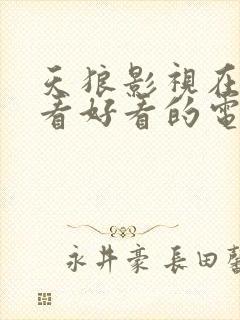 天狼影視在
看好看的電
永井豪 長田馨